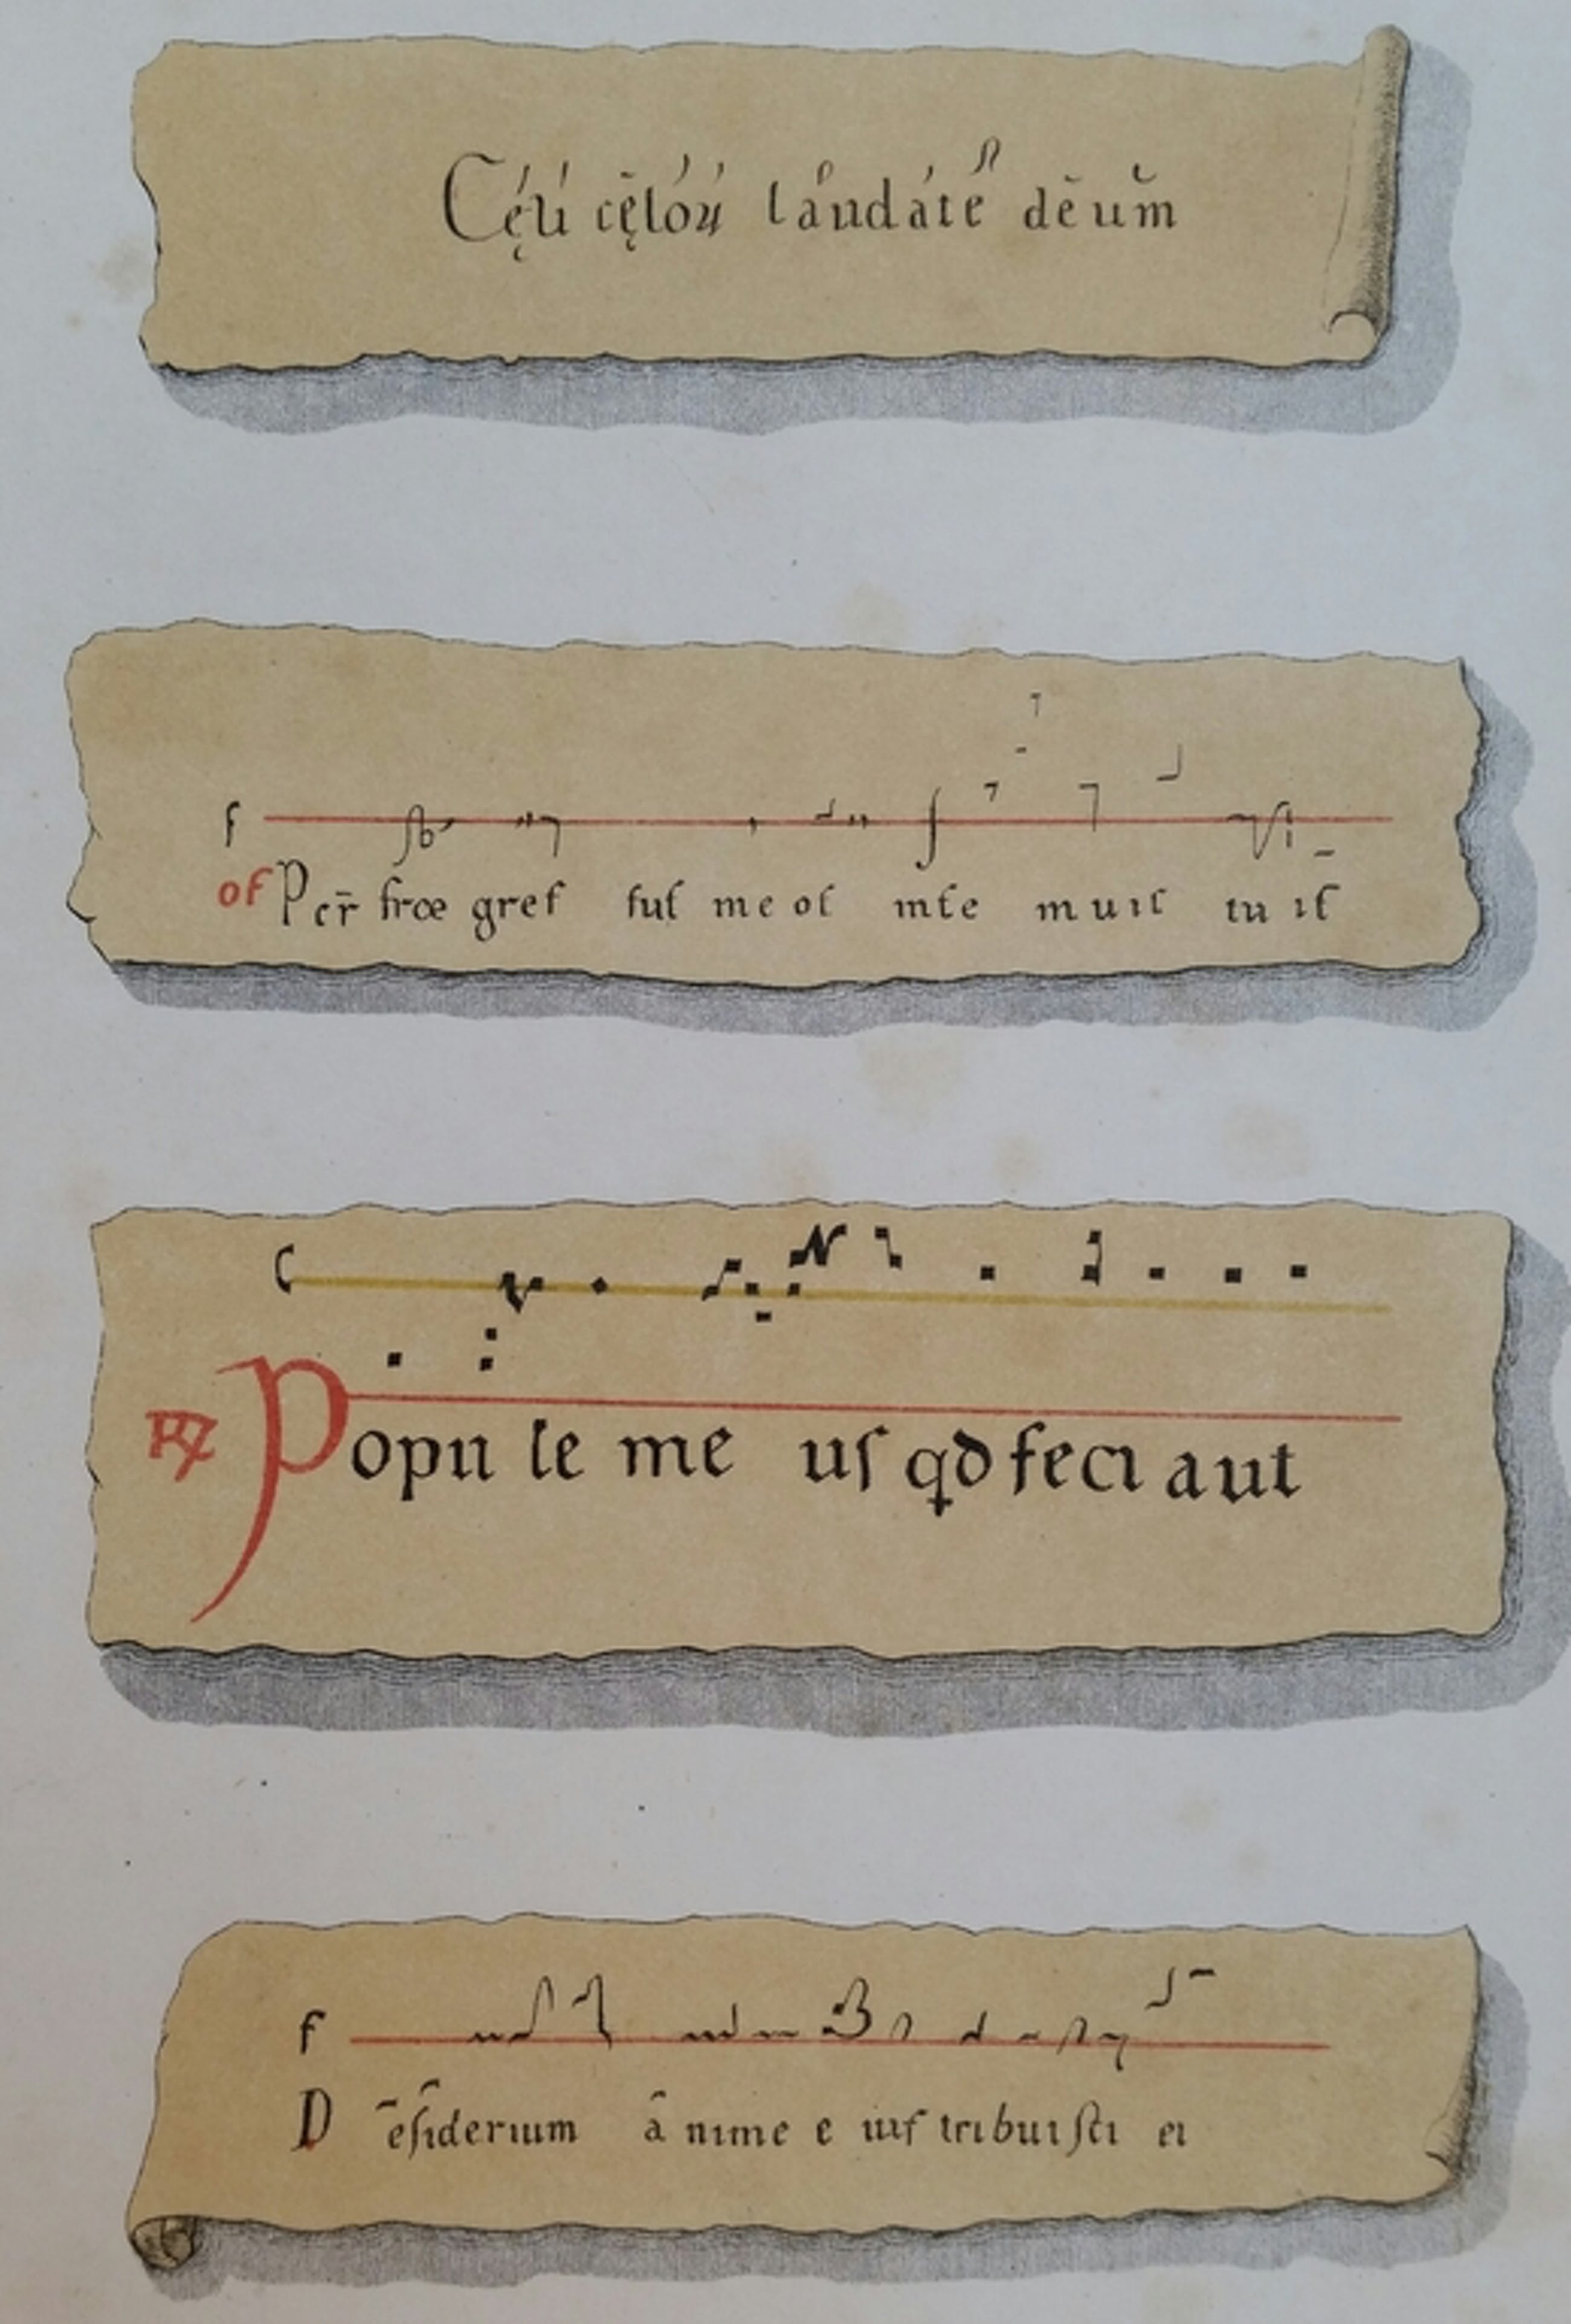 Cę́lí cęlóꝝ laudáte deum
f
of Perf̄ froe gref ſuſ me oſ inſe muıſ tu ıſ
C
℟ Popu le me uſ qđ feci aut
f
D eſıderıum a nıme e ıuſ trıbuı ſtı eı